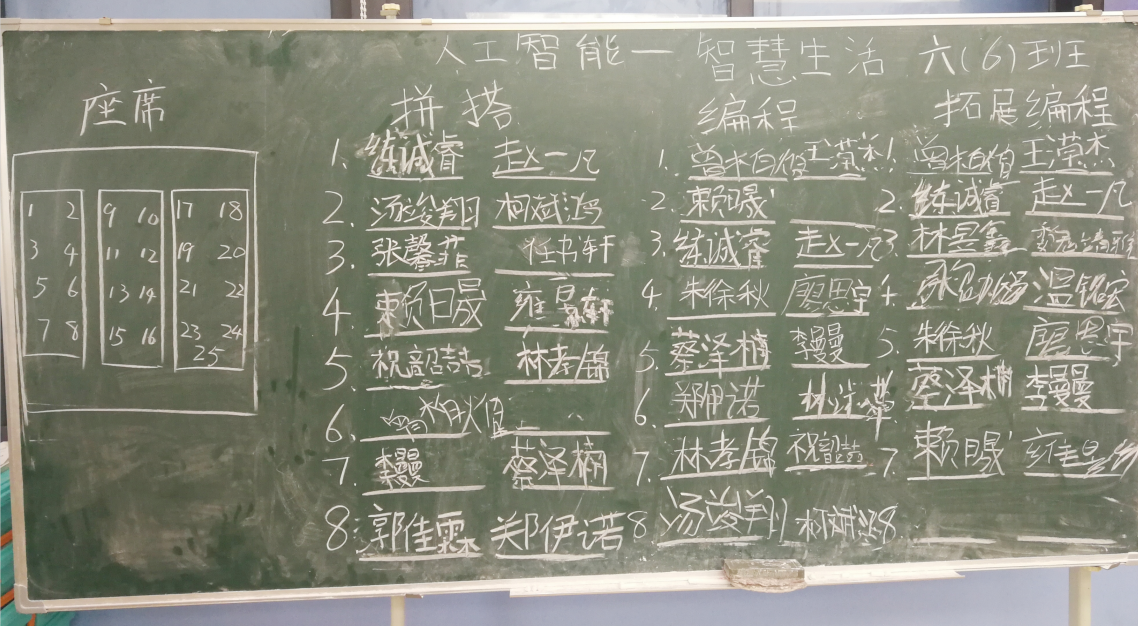 人工智能一智慧生活 六(6)班
座席
1 2
3 4
5 6
7 8
9 10
11 12
13 14
15 16
17 18
19 20
21 22
23 24
25
拼搭
1. 练诚睿 赵一凡
2. 汤浚翔 柯斌鸿
3. 张馨菲 任书轩
4. 赖日晟 雍
5. 祝韶喆 林孝锦
6.
7. 李曼 蔡泽楠
8. 郭佳霖 郑伊诺
编程
1. 曾柏 王滢杰
2. 赖晟
3. 练诚睿 赵一凡
4. 朱徐秋 廖思宇
5. 蔡泽楠 李曼
6. 郑伊诺 林
7. 林孝锦 祝韶喆
8. 汤浚翔 柯斌鸿
拓展编程
1. 曾柏 王滢杰
2. 练诚睿 赵一凡
3. 林昱鑫
4. 温铭
5. 朱徐秋 廖思宇
6. 蔡泽楠 李曼
7. 赖晟 雍
8.